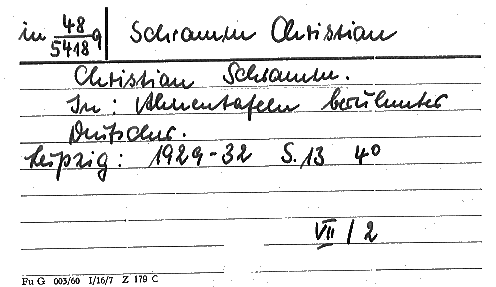 in 48/5418 q Schramm Christian
Christian Schramm.
In: Ahnentafeln berühmter
Deutscher.
Leipzig: 1929-32 S. 13 4°
VII / 2
Fu G 003/60 I/16/7 Z 179 C